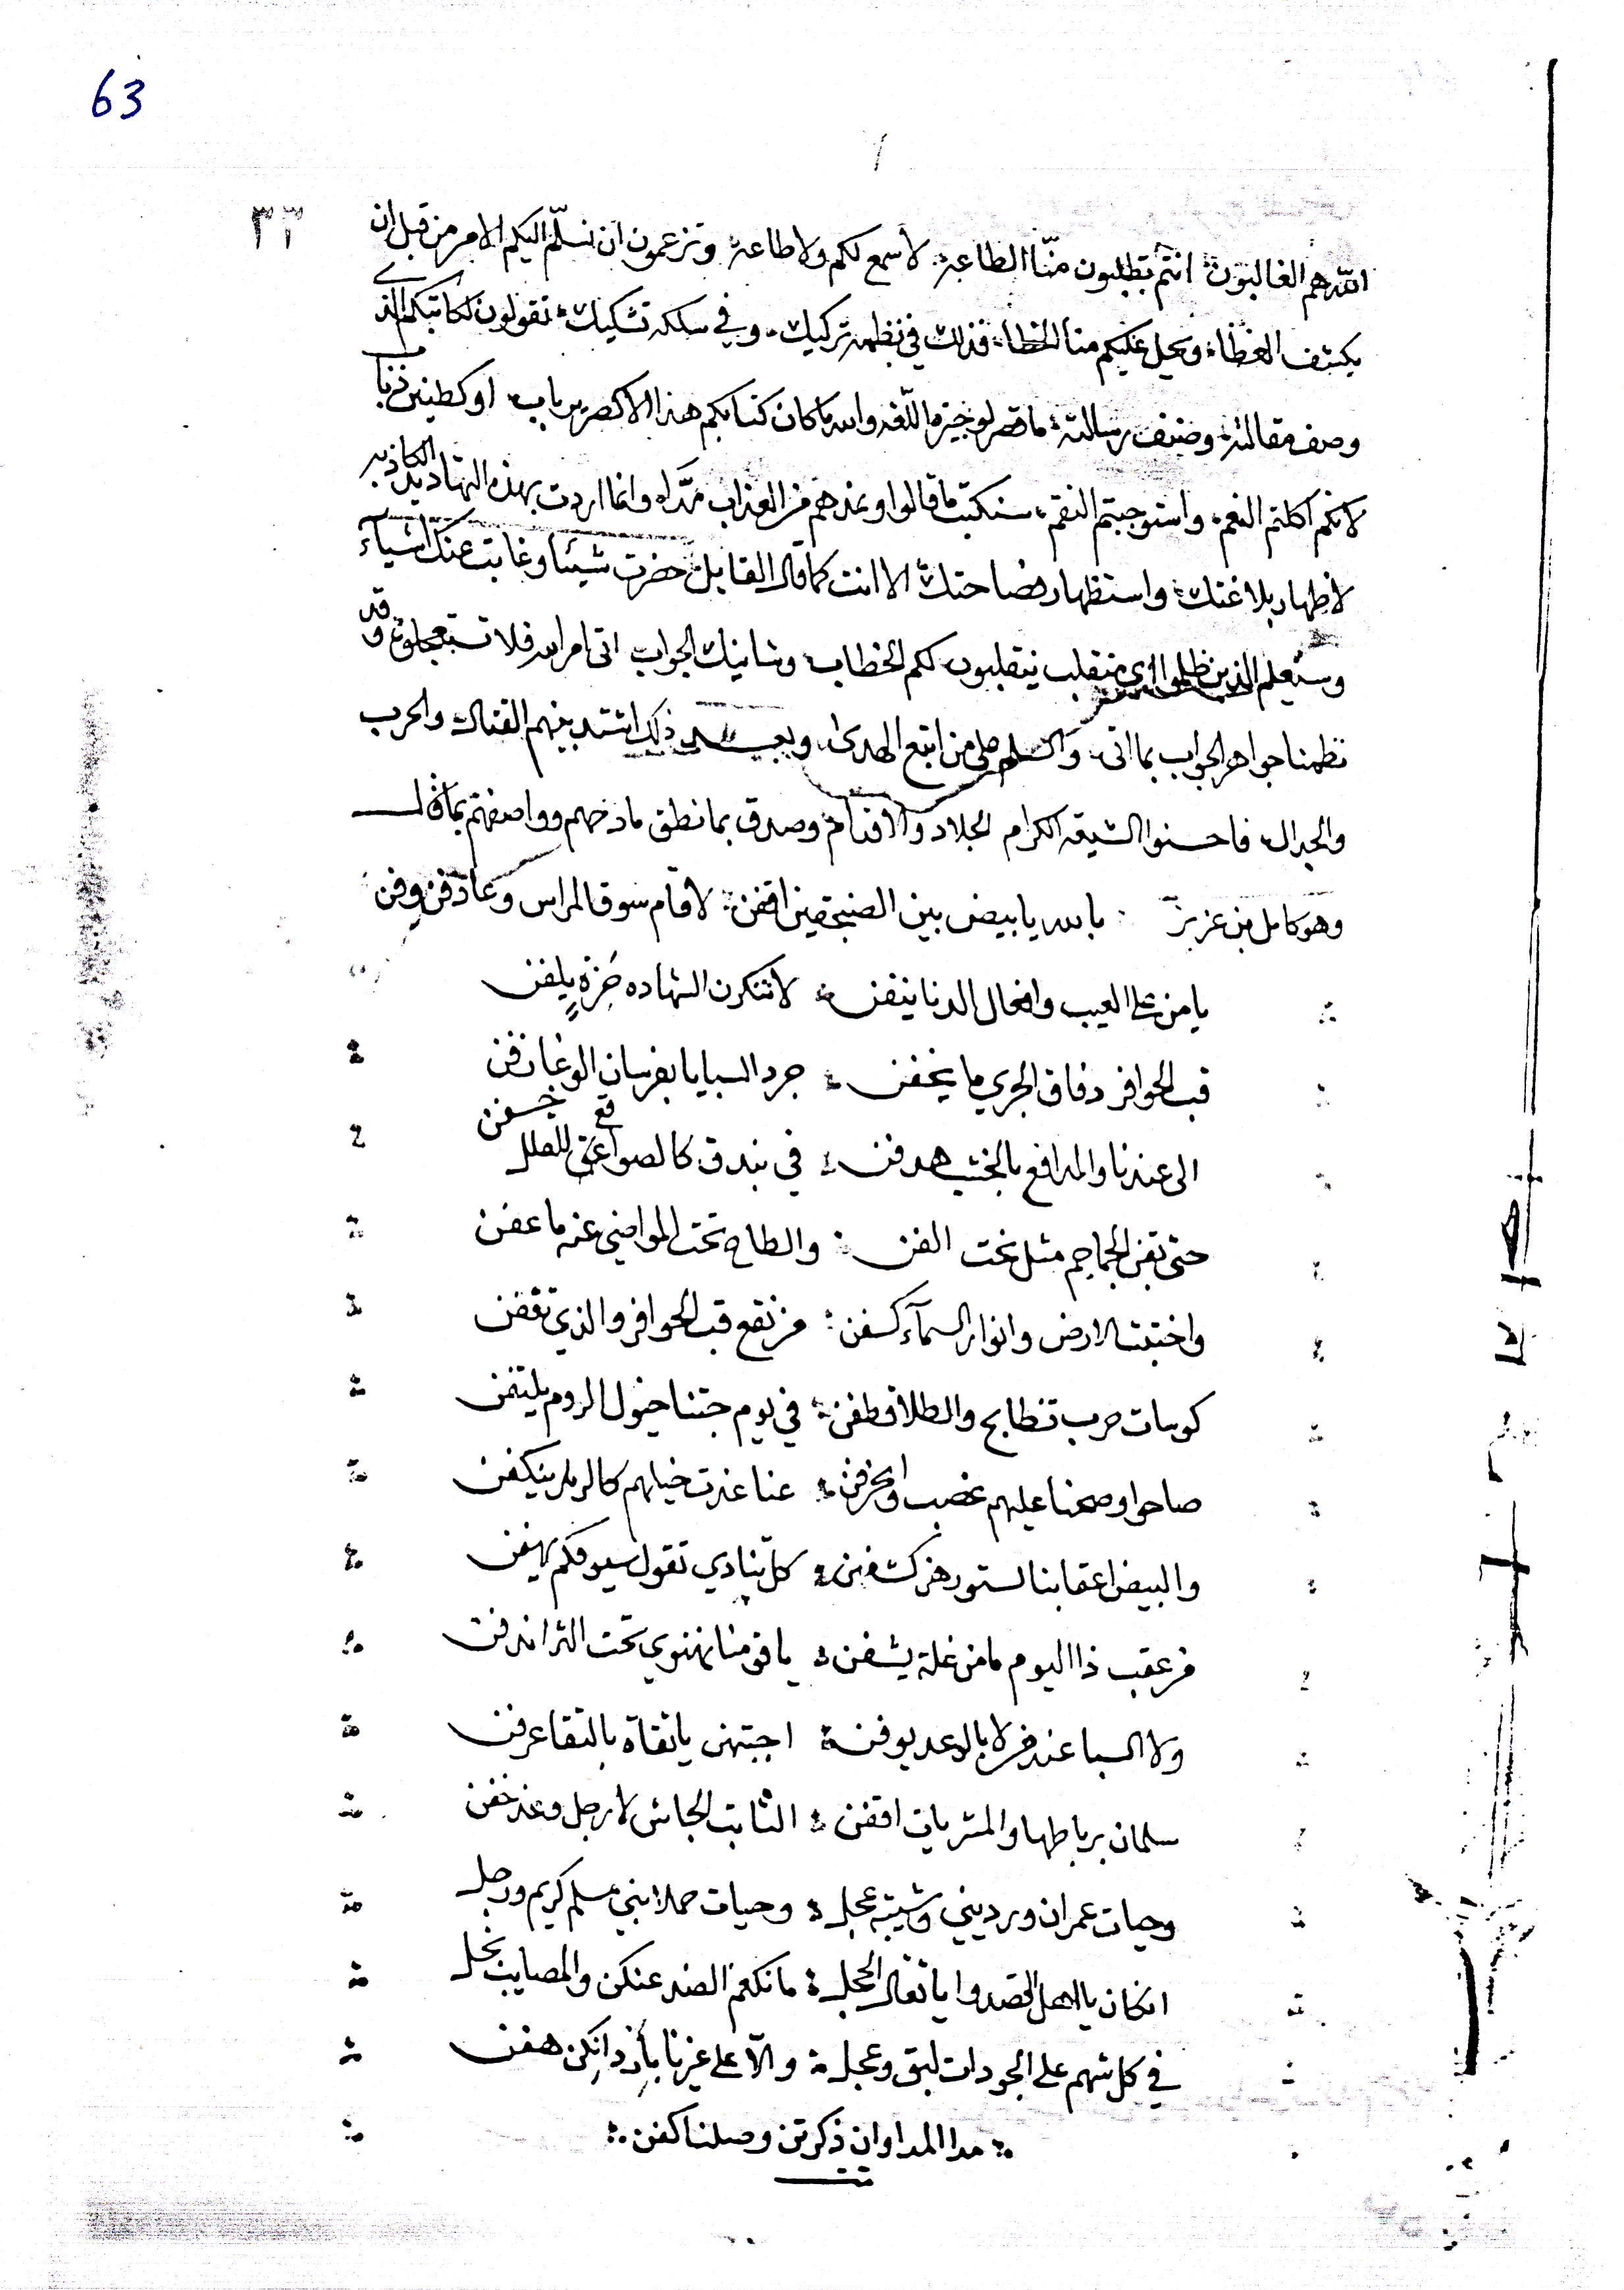 63
٣٣
الله هم الغالبون انتم تطلبون منّا الطاعه لا سمع لكم ولا طاعه وتزعمون ان نسلّم اليكم الامر من قبل ان
يكشف الغطاء ويحل عليكم منا الخطاء فذلك في نظمه تركيك وفي سلكه تشكيك تقولون لكاتبكم الذي
وصف مقالته وصنف رسالته ما قصر والله ما كان كتابكم هذا الا كصرير باب او كطنين ذباب
لانكم اكلتم النعم واستوجبتم النقم سنكتب ما قالوا ونمدهم من العذاب مدّا وانما اردت بهذه التهاديد الكاذبه
لاظهار بلاغتك واستظهار فصاحتك الا انت كما قال القايل حفزت شيئا وغابت عنك اشيآء
وسيعلم الذين ظلموا اي منقلب ينقلبون لكم الخطاب وسانيك الجواب اتى امر الله فلا تستعجلوه وقد
نظمنا جواهر الجواب بما اتى والسلم على من اتبع الهدى وبعد ذلك اشتد بينهم القتال والحرب
والجدال فاحسنوا الشيعه الكرام الجلاد والاقدام وصدق بما نطق مادحهم وواصفهم بما قال
وهو كامل بن عزيز بالله يا بيض بين الصنجقين اقفن لا قام سوق المراس وعاد فن وفن
يا من على العيب وافعال الدنا ينفن لا تنكرن الشهاده يلفن
قب الحوافر دفاق الجري ما يخفن جرد السبايا بفرسان الوغا زفن
الى عندنا والمدافع بالخشب هدفن في بندق كالصواعق
حتى تقز الجماجم مثل نحت الفن والطاح تحت المواضي عنه ما عفن
واختبت الارض وانوار السمآء كسفن من نقع قب الحوافر والذي تقفن
كوسات حرب تنطابح والطلا قطفن في يوم جتنا خيول الروم يلتفن
صاحوا وصحنا عليهم غضب عنا غدت خيلهم كالرمل ينكفن
والبيض اعقابنا لستورهن كشفن كل تنادي تقول سيوفكم يهفن
من عقب ذا اليوم ما من غلة يشفن يا فى منا نهنوي تحت الثرا ندفن
ولا السبا عندهن لا بالوعد يوفن اجبتهن يا نقاة بالنقا عرفن
سلمان برباطها والمشربات اقفن الثابت الجاش لا رجل وعد خفن
وحيات عمران ورديني وشيبه عجل وحيات حملا بني مسلم كريم ورجل
انكان يا اهل القصد وا يا نقال الحجل ما نكعم الضد عنكن والمصايب نحل
في كل شهم على الجودات لبق وعجل والّا على غيرنا هفن
مدا المدا وان ذكرتن وصلنا كفن